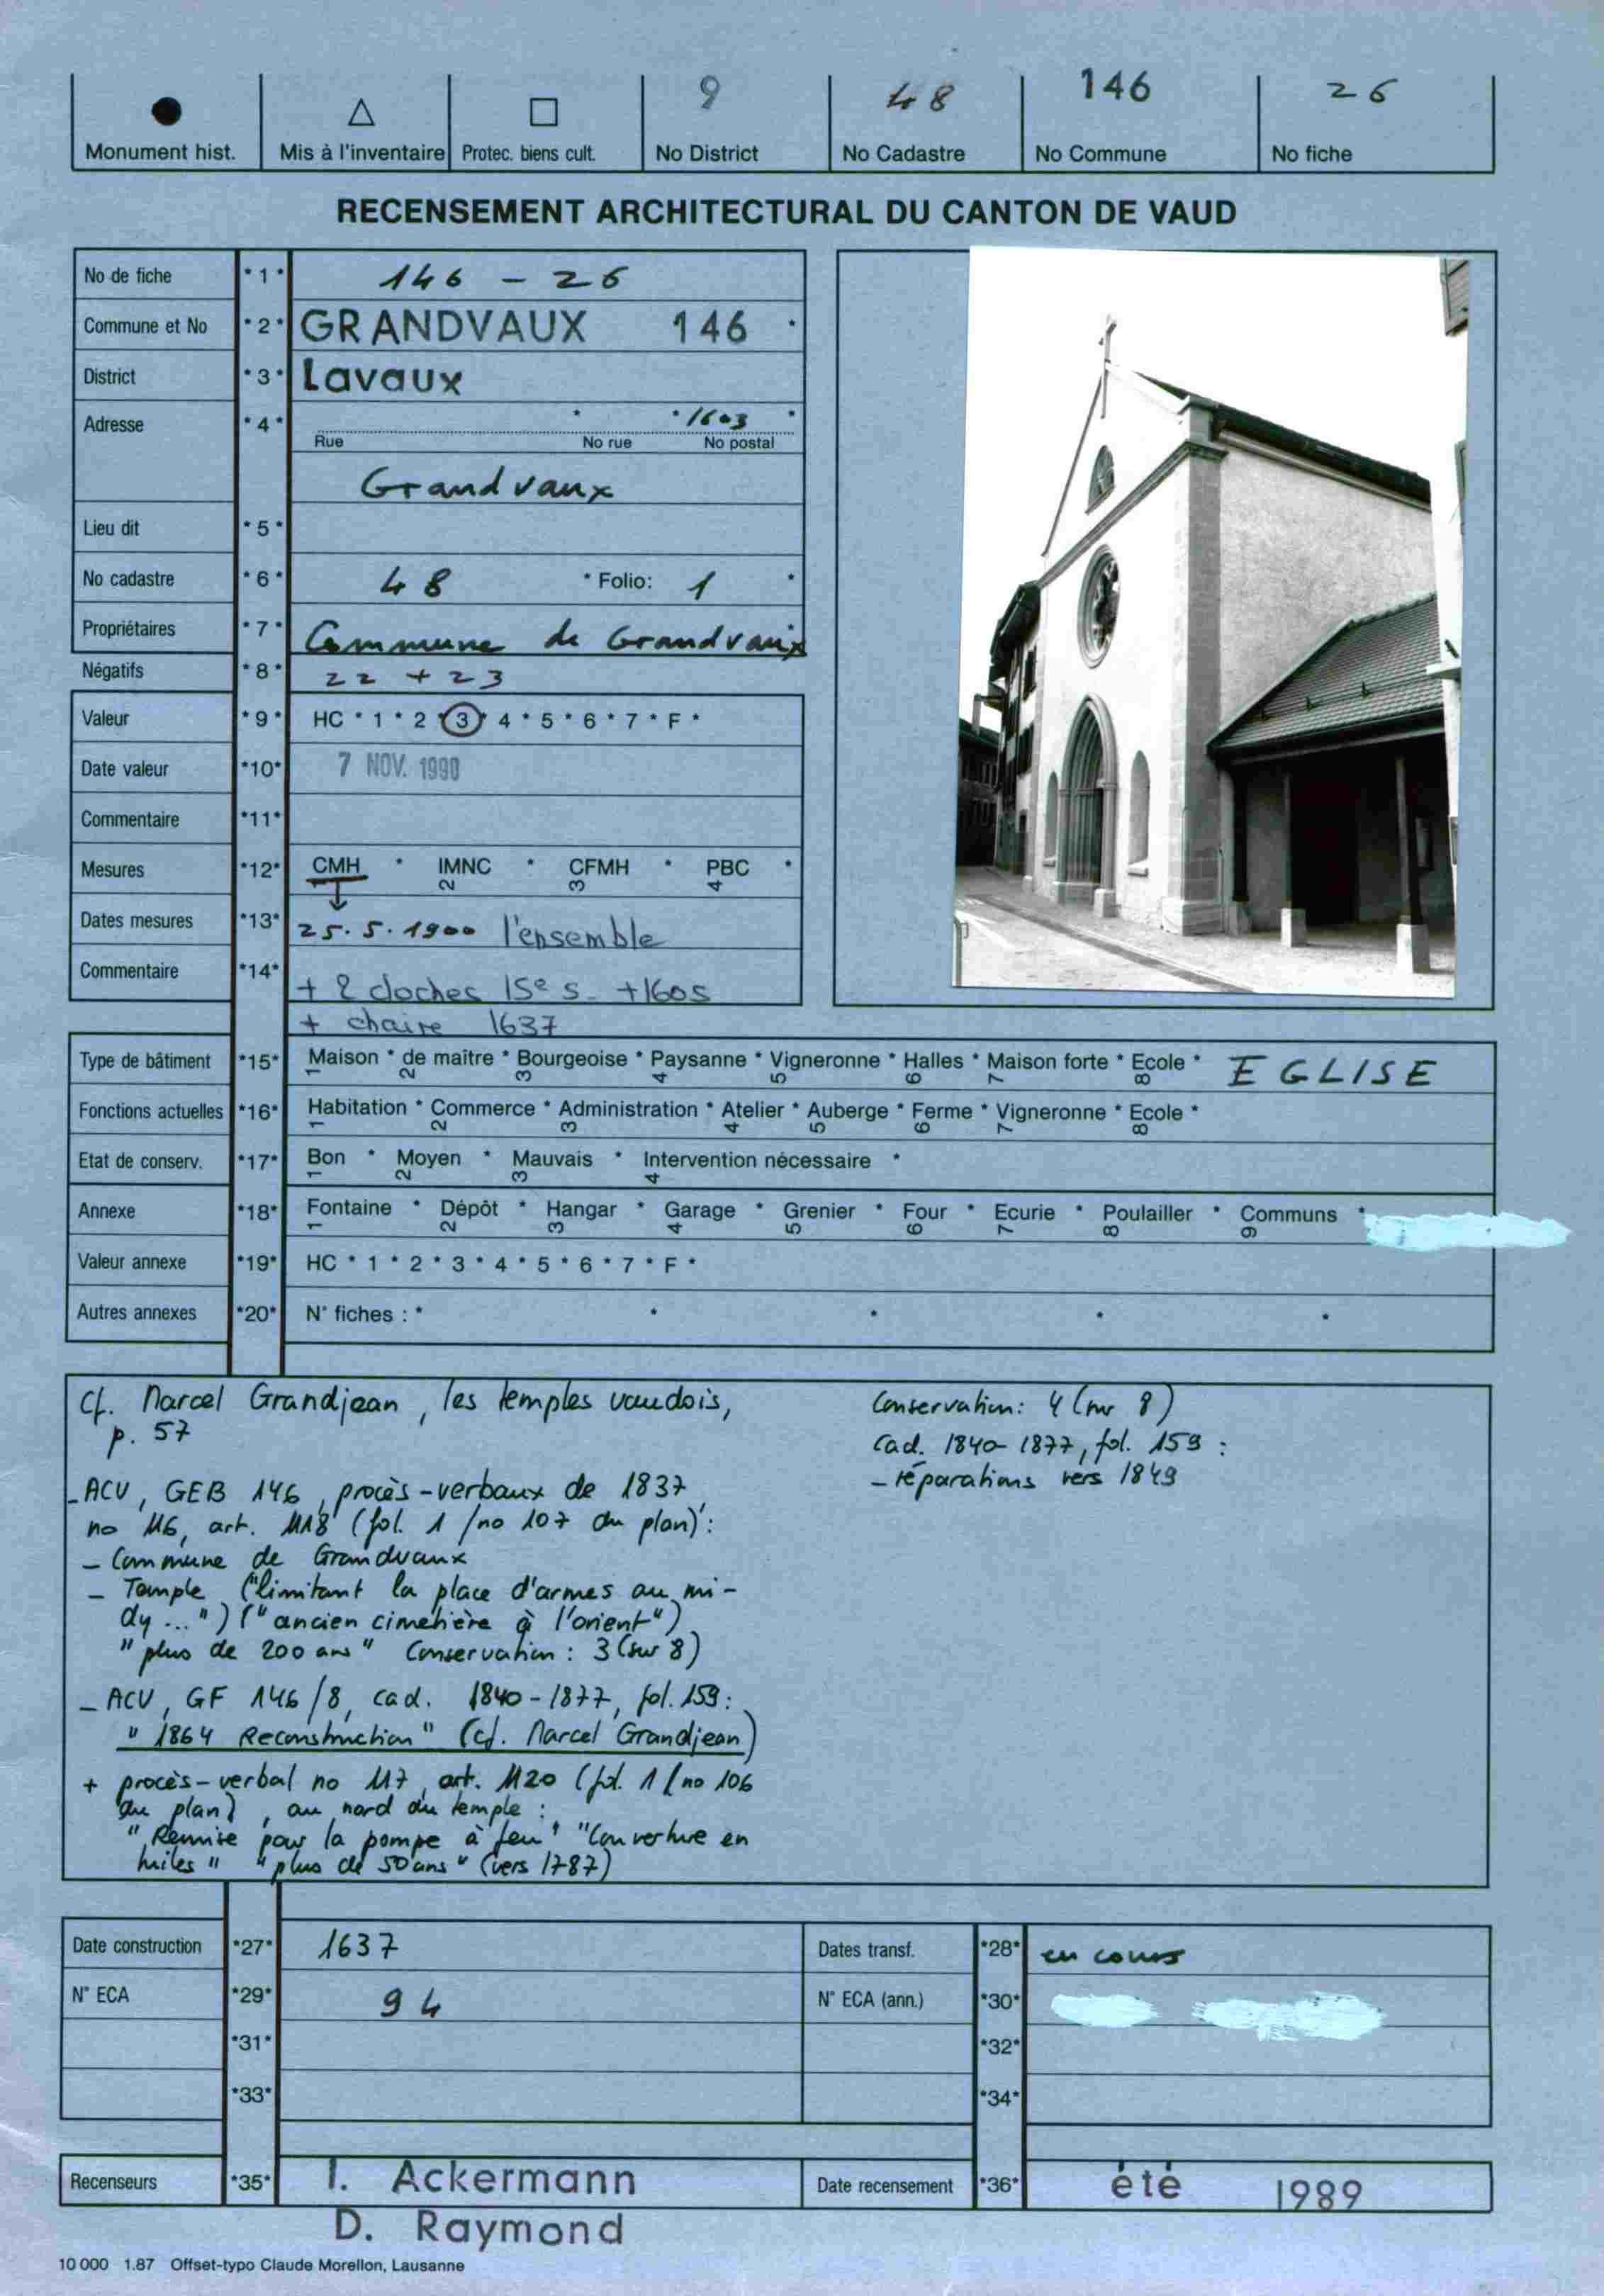 9 48 146 26
Monument hist. Mis à l'inventaire Protec. biens cult. No District No Cadastre No Commune No fiche
RECENSEMENT ARCHITECTURAL DU CANTON DE VAUD
No de fiche *1* 146 - 26
Commune et No *2* GRANDVAUX 146 *
District *3* Lavaux
Adresse *4* * * 1603 *
Rue No rue No postal
Grandvaux
Lieu dit *5*
No cadastre *6* 48 * Folio: 1 *
Propriétaires *7* Commune de Grandvaux
Négatifs *8* 22 + 23
Valeur *9* HC * 1 * 2 * 3 * 4 * 5 * 6 * 7 * F *
Date valeur *10* 7 NOV. 1990
Commentaire *11*
Mesures *12* CMH * IMNC * CFMH * PBC *
2 3 4
Dates mesures *13* 25.5.1900 l'ensemble
Commentaire *14* + 2 cloches 15e s. +1605
+ chaire 1637
Type de bâtiment *15* Maison * de maître * Bourgeoise * Paysanne * Vigneronne * Halles * Maison forte * Ecole * EGLISE
1 2 3 4 5 6 7 8
Fonctions actuelles *16* Habitation * Commerce * Administration * Atelier * Auberge * Ferme * Vigneronne * Ecole *
1 2 3 4 5 6 7 8
Etat de conserv. *17* Bon * Moyen * Mauvais * Intervention nécessaire *
1 2 3 4
Annexe *18* Fontaine * Dépôt * Hangar * Garage * Grenier * Four * Ecurie * Poulailler * Communs *
1 2 3 4 5 6 7 8 9
Valeur annexe *19* HC * 1 * 2 * 3 * 4 * 5 * 6 * 7 * F *
Autres annexes *20* N° fiches : * * * * *
Cf. Marcel Grandjean, les temples vaudois,
p. 57
- ACV, GEB 146, procès-verbaux de 1837,
no 116, art. 1118 (fol. 1 / no 107 du plan):
- Commune de Grandvaux
- Temple ("limitant la place d'armes au mi-
dy ...") ("ancien cimetière à l'orient")
"plus de 200 ans" Conservation: 3 (sur 8)
- ACV, GF 146/8, cad. 1840-1877, fol. 159:
"1864 Reconstruction" (cf. Marcel Grandjean)
+ procès-verbal no 117, art. 1120 (fol. 1 / no 106
du plan), au nord du temple:
"Remise pour la pompe à feu" "Couverture en
tuiles" "plus de 50 ans" (vers 1787)
Conservation: 4 (sur 8)
Cad. 1840-1877, fol. 159:
- réparations vers 1849
Date construction *27* 1637 Dates transf. *28* en cours
N° ECA *29* 94 N° ECA (ann.) *30*
*31* *32*
*33* *34*
Recenseurs *35* I. Ackermann Date recensement *36* été 1989
D. Raymond
10 000 1.87 Offset-typo Claude Morellon, Lausanne